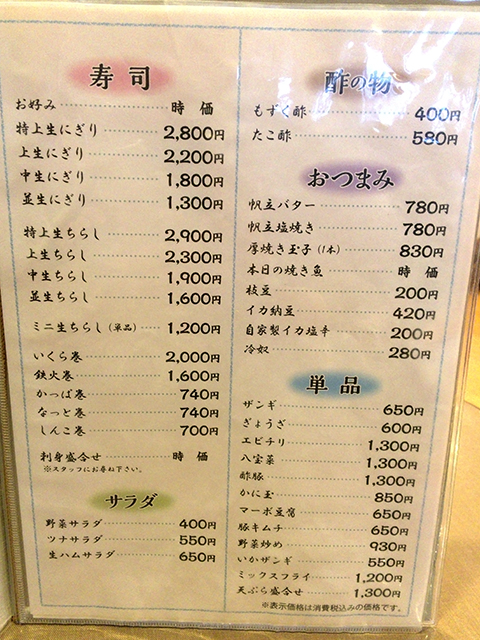 寿司
お好み 時価
特上生にぎり 2,800円
上生にぎり 2,200円
中生にぎり 1,800円
並生にぎり 1,300円
特上生ちらし 2,900円
上生ちらし 2,300円
中生ちらし 1,900円
並生ちらし 1,600円
ミニ生ちらし(単品) 1,200円
いくら巻 2,000円
鉄火巻 1,600円
かっぱ巻 740円
なっと巻 740円
しんこ巻 700円
刺身盛合せ 時価
※スタッフにお尋ね下さい。
サラダ
野菜サラダ 400円
ツナサラダ 550円
生ハムサラダ 650円
酢の物
もずく酢 400円
たこ酢 580円
おつまみ
帆立バター 780円
帆立塩焼き 780円
厚焼き玉子(1本) 830円
本日の焼き魚 時価
枝豆 200円
イカ納豆 420円
自家製イカ塩辛 200円
冷奴 280円
単品
ザンギ 650円
ぎょうざ 600円
エビチリ 1,300円
八宝菜 1,300円
酢豚 1,300円
かに玉 850円
マーボ豆腐 650円
豚キムチ 650円
野菜炒め 930円
いかザンギ 550円
ミックスフライ 1,200円
天ぷら盛合せ 1,300円
※表示価格は消費税込みの価格です。